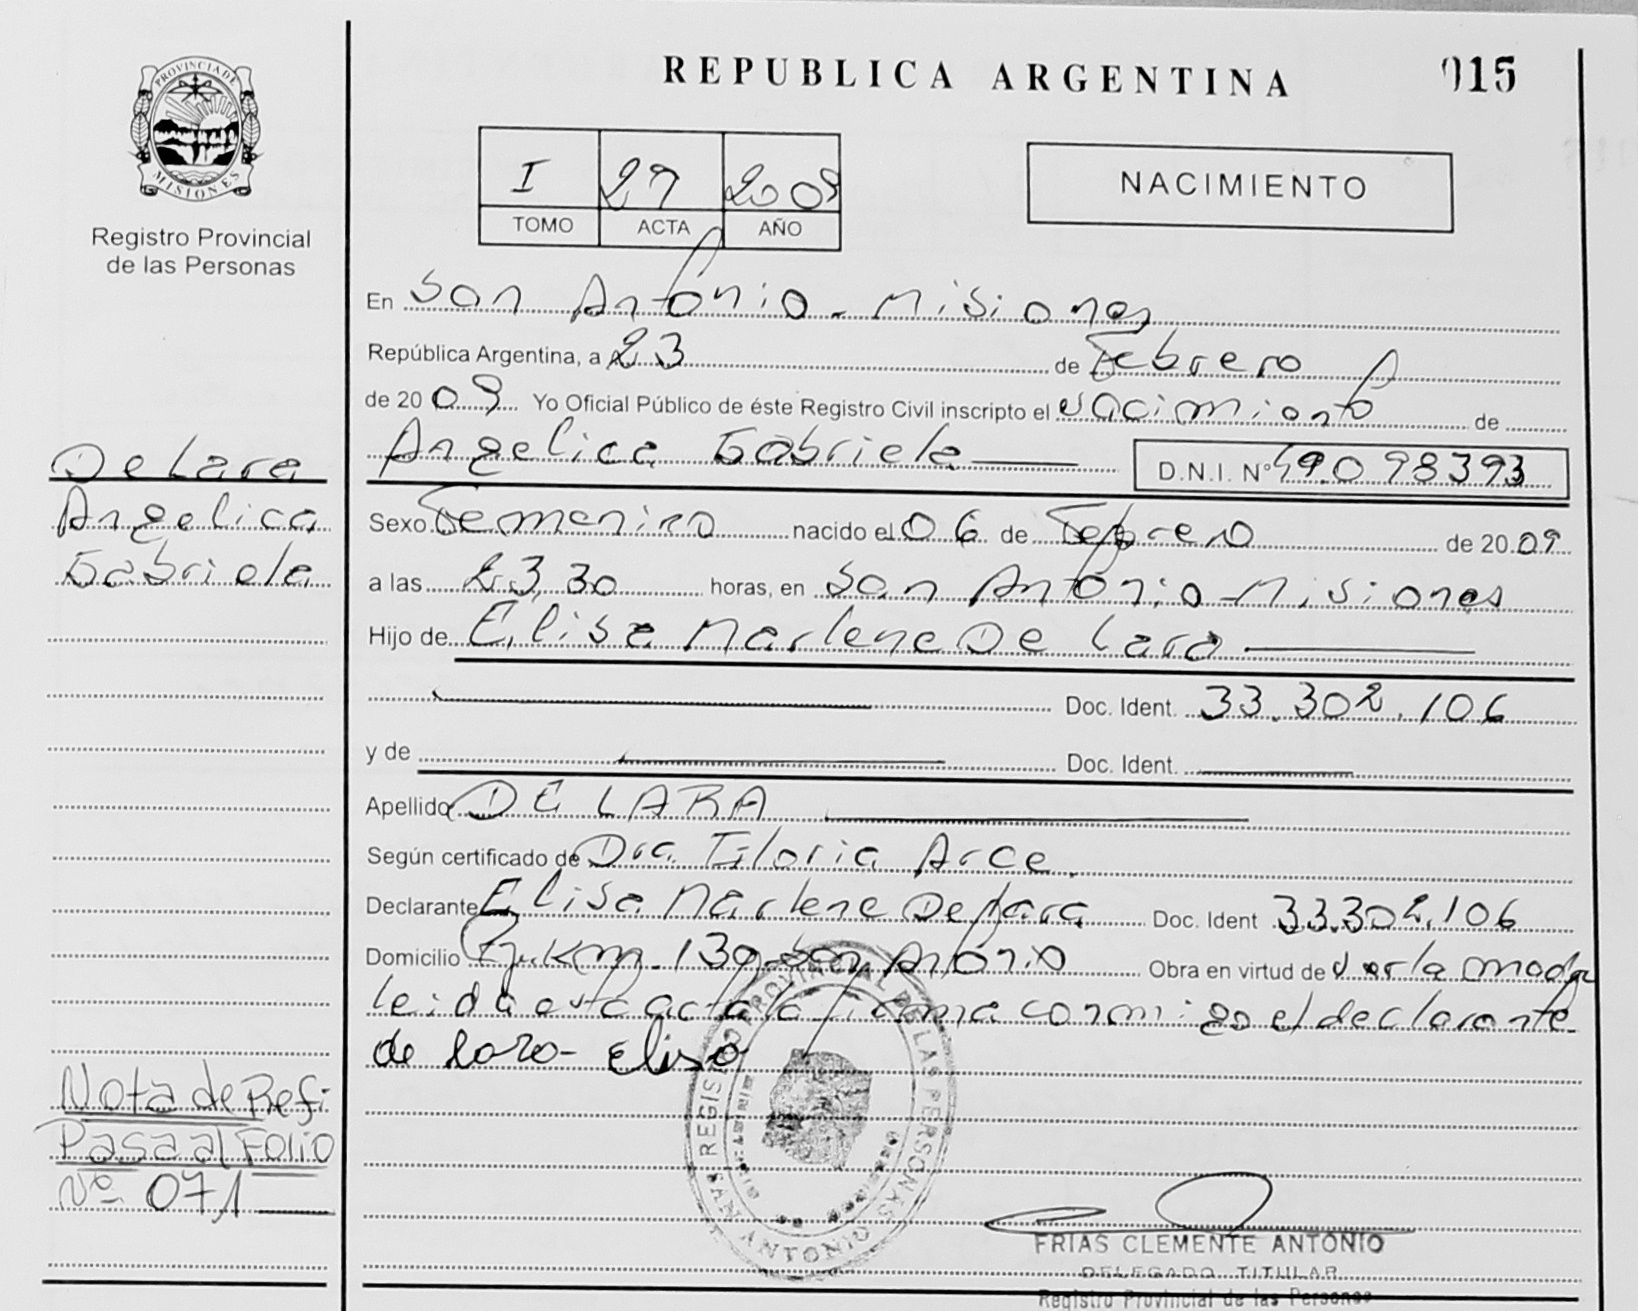 REPUBLICA ARGENTINA
015
PROVINCIA DE
MISIONES
Registro Provincial
de las Personas
I 27 2009
TOMO ACTA AÑO
NACIMIENTO
En San Antonio - Misiones
República Argentina, a 23 de Febrero
de 2009 Yo Oficial Público de éste Registro Civil inscripto el nacimiento de
Angelica Gabriela D.N.I. Nº 49.098393
De Lara
Angelica
Gabriela
Sexo Femenino nacido el 06 de Febrero de 2009
a las 23,30 horas, en San Antonio - Misiones
Hijo de Elisa Marlene De Lara
Doc. Ident. 33.302.106
y de Doc. Ident.
Apellido DE LARA
Según certificado de Dra. Gloria Arce
Declarante Elisa Marlene De Lara Doc. Ident 33.302.106
Domicilio Km. 139 San Antonio Obra en virtud de ser la madre
leida esta acta la firma conmigo el declarante
de Lara - Elisa
Nota de Refi.
Pasa al Folio
Nº 071
REGISTRO PROVINCIAL DE LAS PERSONAS
SAN ANTONIO
FRIAS CLEMENTE ANTONIO
DELEGADO TITULAR
Registro Provincial de las Personas